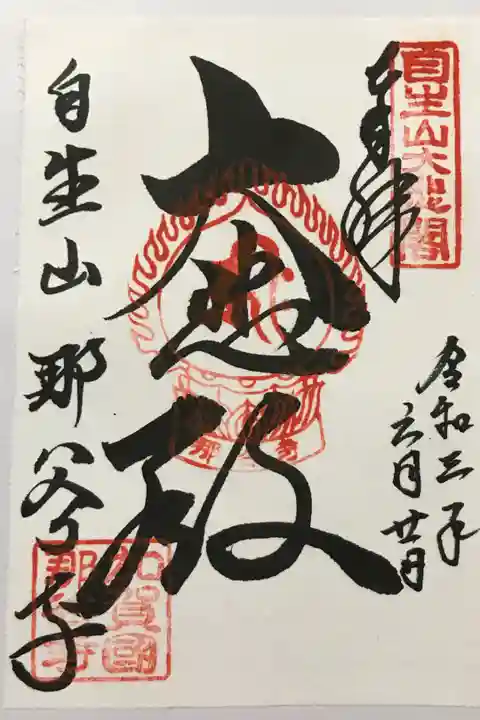 奉拝
自生山大悲閣
令和三年
六月廿日
大悲殿
那 寺
自生山
那谷寺
加賀國
那谷寺